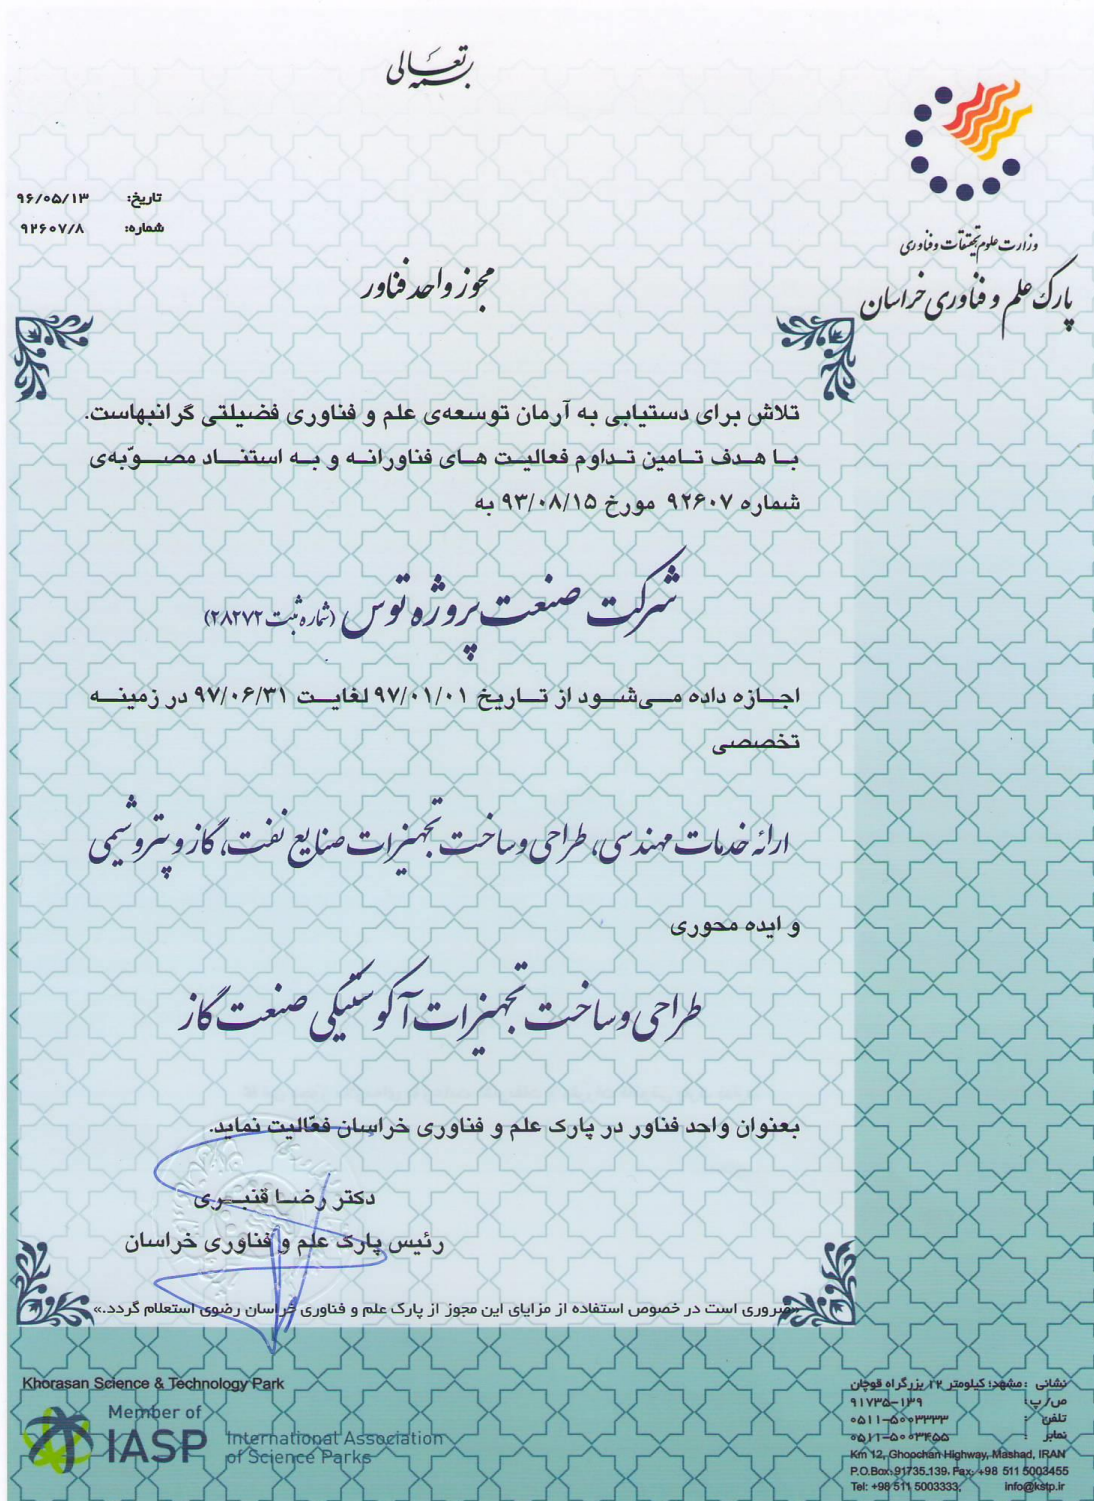 بسمه تعالی
تاریخ: ۹۶/۰۵/۱۳
شماره: ۹۲۶۰۷/۸
وزارت علوم تحقیقات و فناوری
پارک علم و فناوری خراسان
مجوز واحد فناور
تلاش برای دستیابی به آرمان توسعه‌ی علم و فناوری فضیلتی گرانبهاست.
با هدف تامین تداوم فعالیت های فناورانه و به استناد مصوّبه‌ی
شماره ۹۲۶۰۷ مورخ ۹۳/۰۸/۱۵ به
شرکت صنعت پروژه توس (شماره ثبت ۲۸۲۷۲)
اجازه داده می‌شود از تاریخ ۹۷/۰۱/۰۱ لغایت ۹۷/۰۶/۳۱ در زمینه
تخصصی
ارائه خدمات مهندسی، طراحی و ساخت تجهیزات صنایع نفت، گاز و پتروشیمی
و ایده محوری
طراحی و ساخت تجهیزات آکوستیکی صنعت گاز
بعنوان واحد فناور در پارک علم و فناوری خراسان فعّالیت نماید.
دکتر رضا قنبری
رئیس پارک علم و فناوری خراسان
«ضروری است در خصوص استفاده از مزایای این مجوز از پارک علم و فناوری خراسان رضوی استعلام گردد.»
Khorasan Science & Technology Park
Member of
IASP
International Association
of Science Parks
نشانی : مشهد؛ کیلومتر ۱۲ بزرگراه قوچان
ص/پ: ۹۱۷۳۵-۱۳۹
تلفن : ۰۵۱۱-۵۰۰۳۳۳۳
نمابر : ۰۵۱۱-۵۰۰۳۴۵۵
Km 12, Ghoochan Highway, Mashad, IRAN
P.O.Box: 91735.139, Fax: +98 511 5003455
Tel: +98 511 5003333, info@kstp.ir